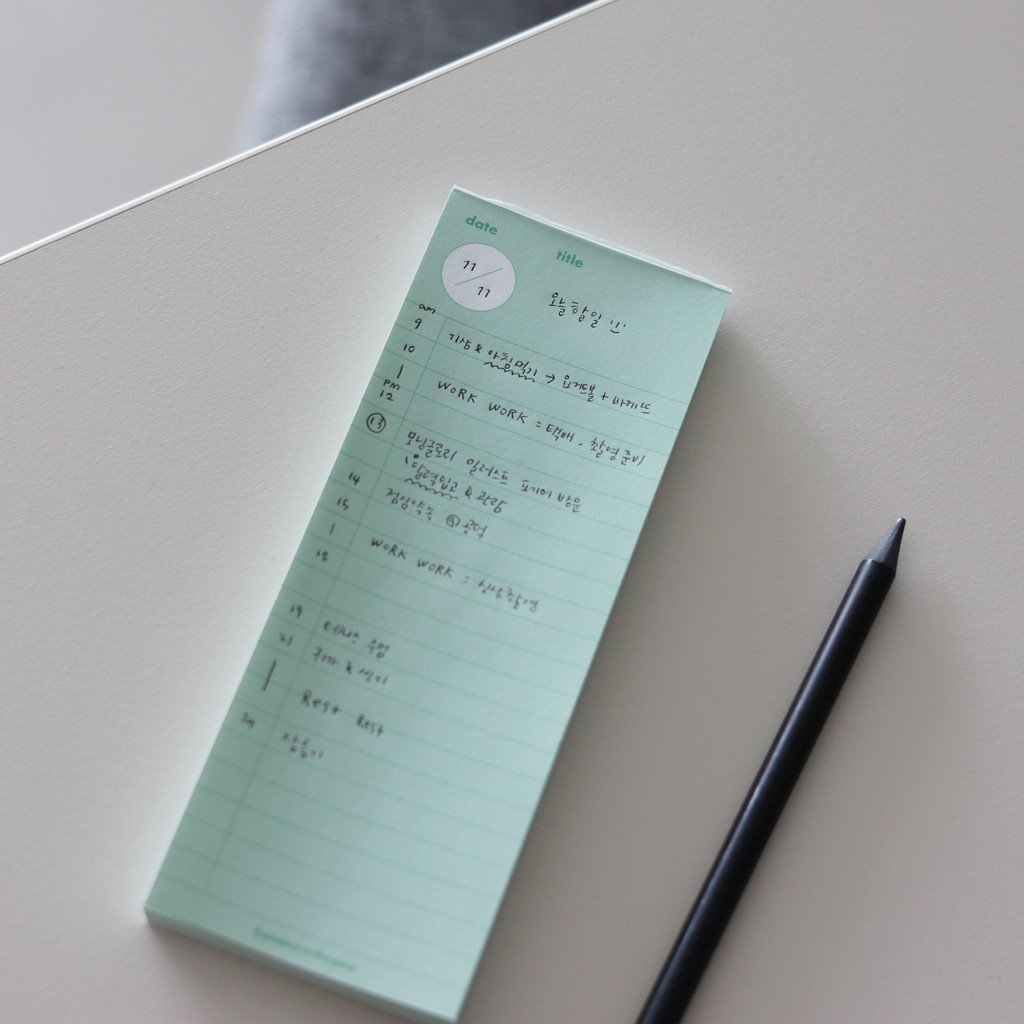 date
title
11/11
오늘할일
am
9 기상 & 아침먹기 → 요거트볼 + 바게뜨
10
|
WORK WORK = 택배, 촬영준비
pm
12
13 모닝글로리 일러스트 방문
(달력입고 & 관람
14 점심약속
15
| WORK WORK = 신상촬영
18
19 테니스 수업
21 귀가 & 씻기
| Rest Rest
24 잠들기